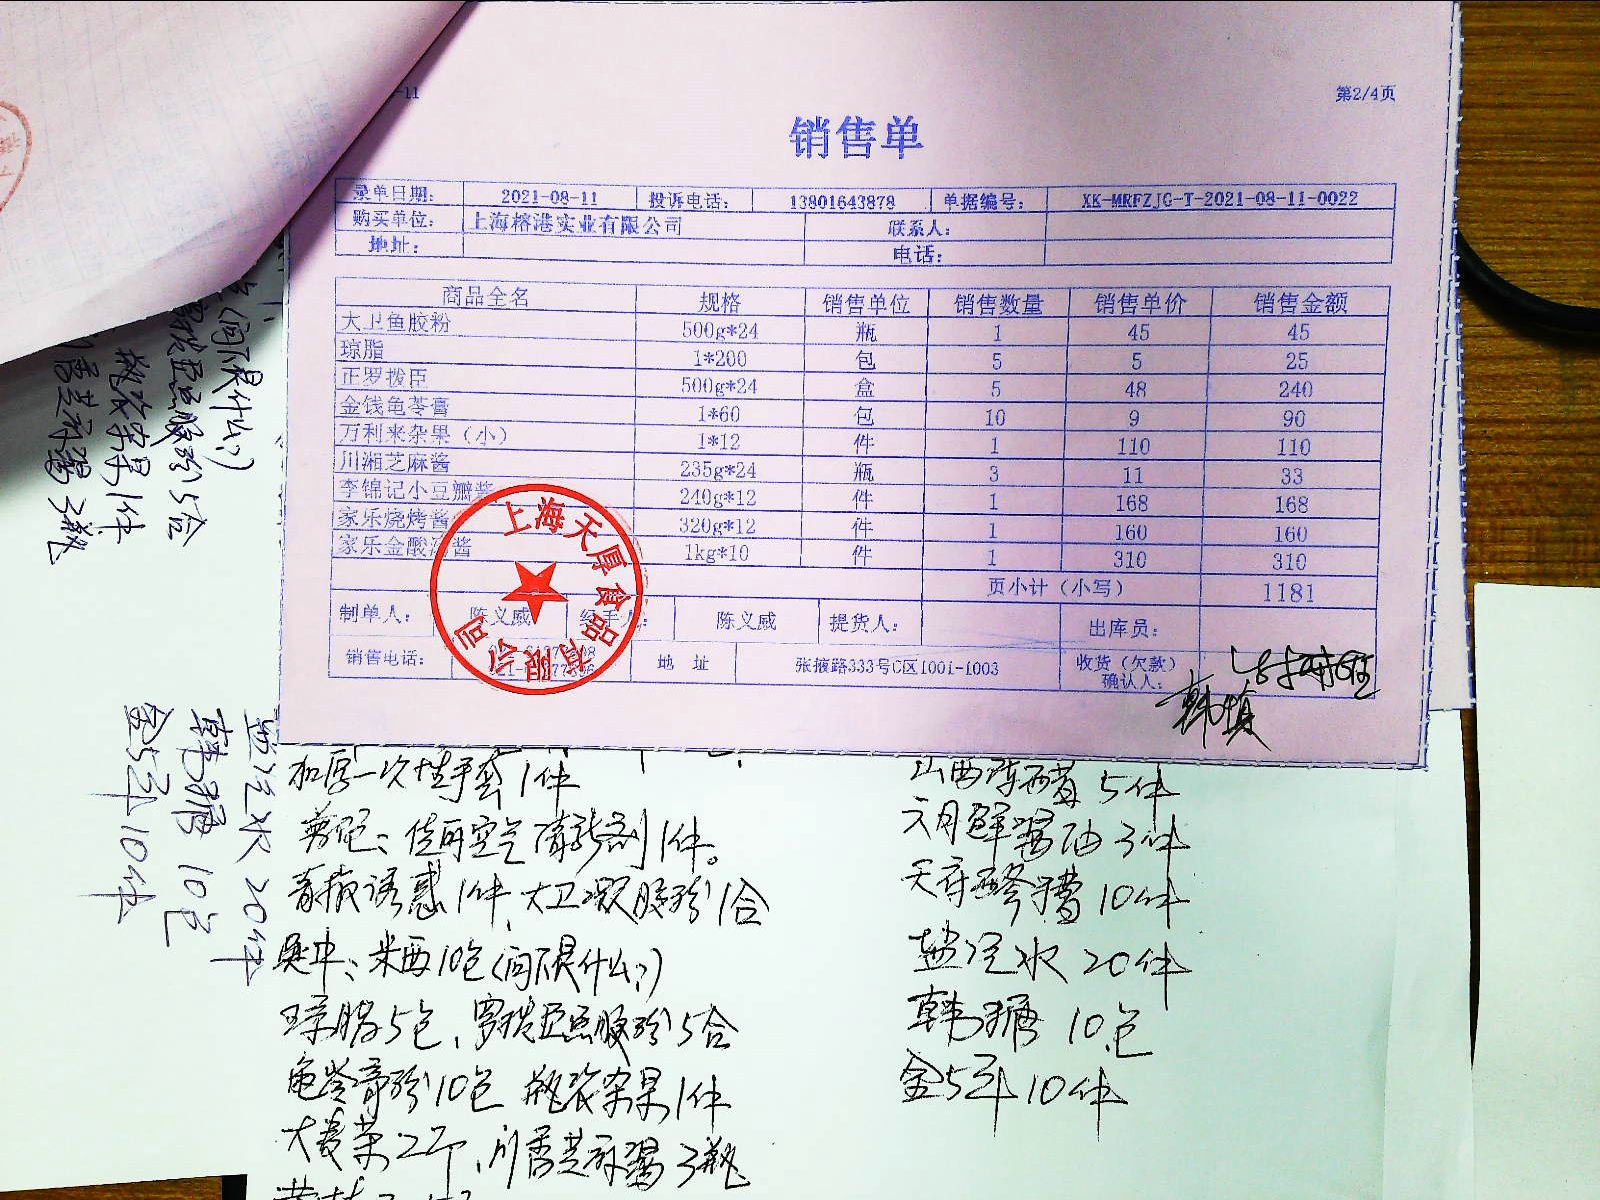 -11
第2/4页
销售单
录单日期： 2021-08-11 投诉电话： 13801643878 单据编号： XK-MRFZJG-T-2021-08-11-0022
购买单位： 上海榕港实业有限公司 联系人：
地址： 电话：
商品全名 规格 销售单位 销售数量 销售单价 销售金额
大卫鱼胶粉 500g*24 瓶 1 45 45
琼脂 1*200 包 5 5 25
正罗拨臣 500g*24 盒 5 48 240
金钱龟苓膏 1*60 包 10 9 90
万利来杂果（小） 1*12 件 1 110 110
川湘芝麻酱 235g*24 瓶 3 11 33
李锦记小豆瓣酱 240g*12 件 1 168 168
家乐烧烤酱 320g*12 件 1 160 160
家乐金酸汤酱 1kg*10 件 1 310 310
页小计（小写） 1181
制单人： 陈义威 经手人： 陈义威 提货人： 出库员：
销售电话： 地 址 张掖路333号C区1001-1003 收货（欠款）确认人：
上海天厚食品有限公司
加厚一次性手套1件
空气清新剂1件。
诱惑1件、大卫凝胶粉1合
10包(问不是什么?)
琼脂5包、罗拨臣鱼胶粉5合
龟苓膏粉10包 瓶装杂果1件
川香芝麻酱3瓶
山西陈醋5件
六月鲜酱油3件
天府醪糟10件
盐汽水20件
10包
10件
(问不是什么?)
鱼胶粉5合
瓶装杂果1件
芝麻酱3瓶
盐汽水20件
10包
10件